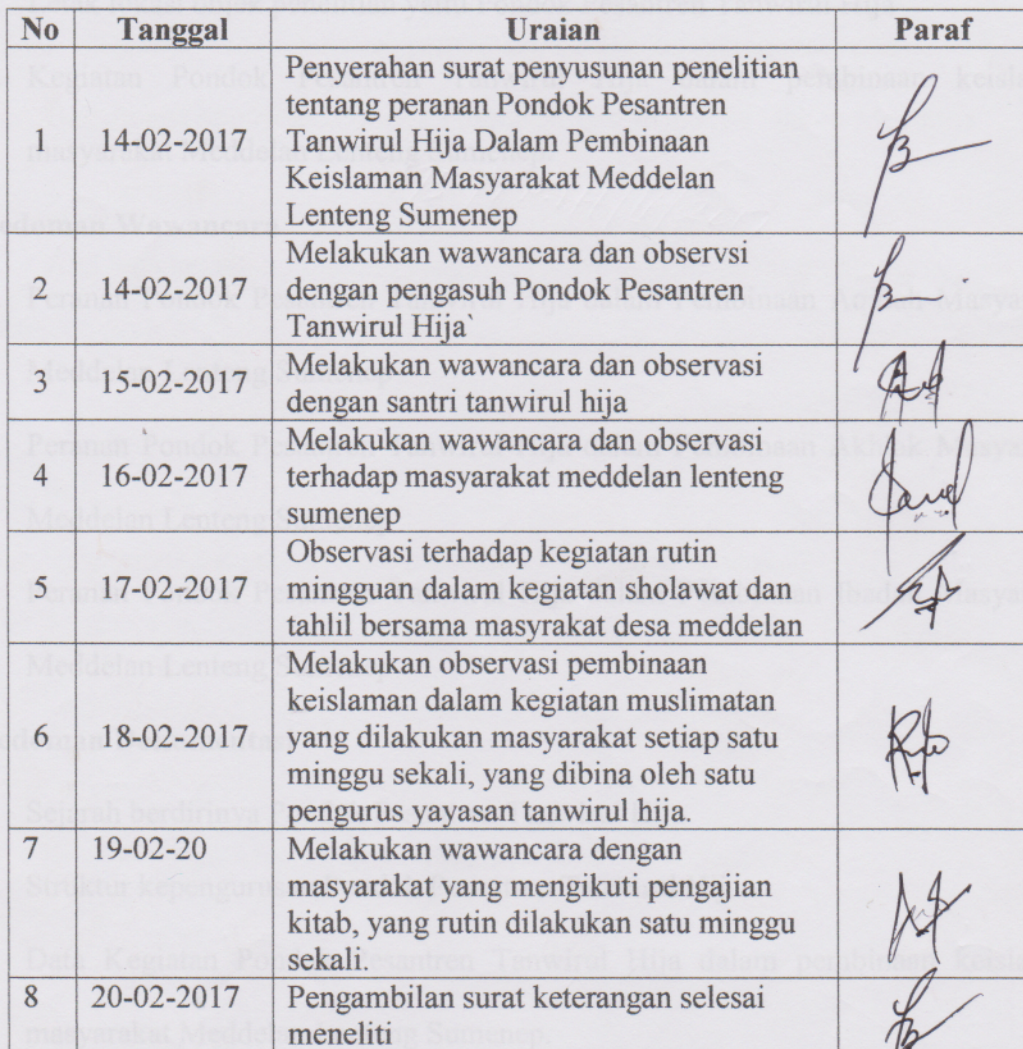 No Tanggal Uraian Paraf
Penyerahan surat penyusunan penelitian
tentang peranan Pondok Pesantren
1 14-02-2017 Tanwirul Hija Dalam Pembinaan
Keislaman Masyarakat Meddelan
Lenteng Sumenep
Melakukan wawancara dan observsi
2 14-02-2017 dengan pengasuh Pondok Pesantren
Tanwirul Hija`
3 15-02-2017 Melakukan wawancara dan observasi
dengan santri tanwirul hija
Melakukan wawancara dan observasi
4 16-02-2017 terhadap masyarakat meddelan lenteng
sumenep
Observasi terhadap kegiatan rutin
5 17-02-2017 mingguan dalam kegiatan sholawat dan
tahlil bersama masyrakat desa meddelan
Melakukan observasi pembinaan
keislaman dalam kegiatan muslimatan
6 18-02-2017 yang dilakukan masyarakat setiap satu
minggu sekali, yang dibina oleh satu
pengurus yayasan tanwirul hija.
7 19-02-20 Melakukan wawancara dengan
masyarakat yang mengikuti pengajian
kitab, yang rutin dilakukan satu minggu
sekali.
8 20-02-2017 Pengambilan surat keterangan selesai
meneliti